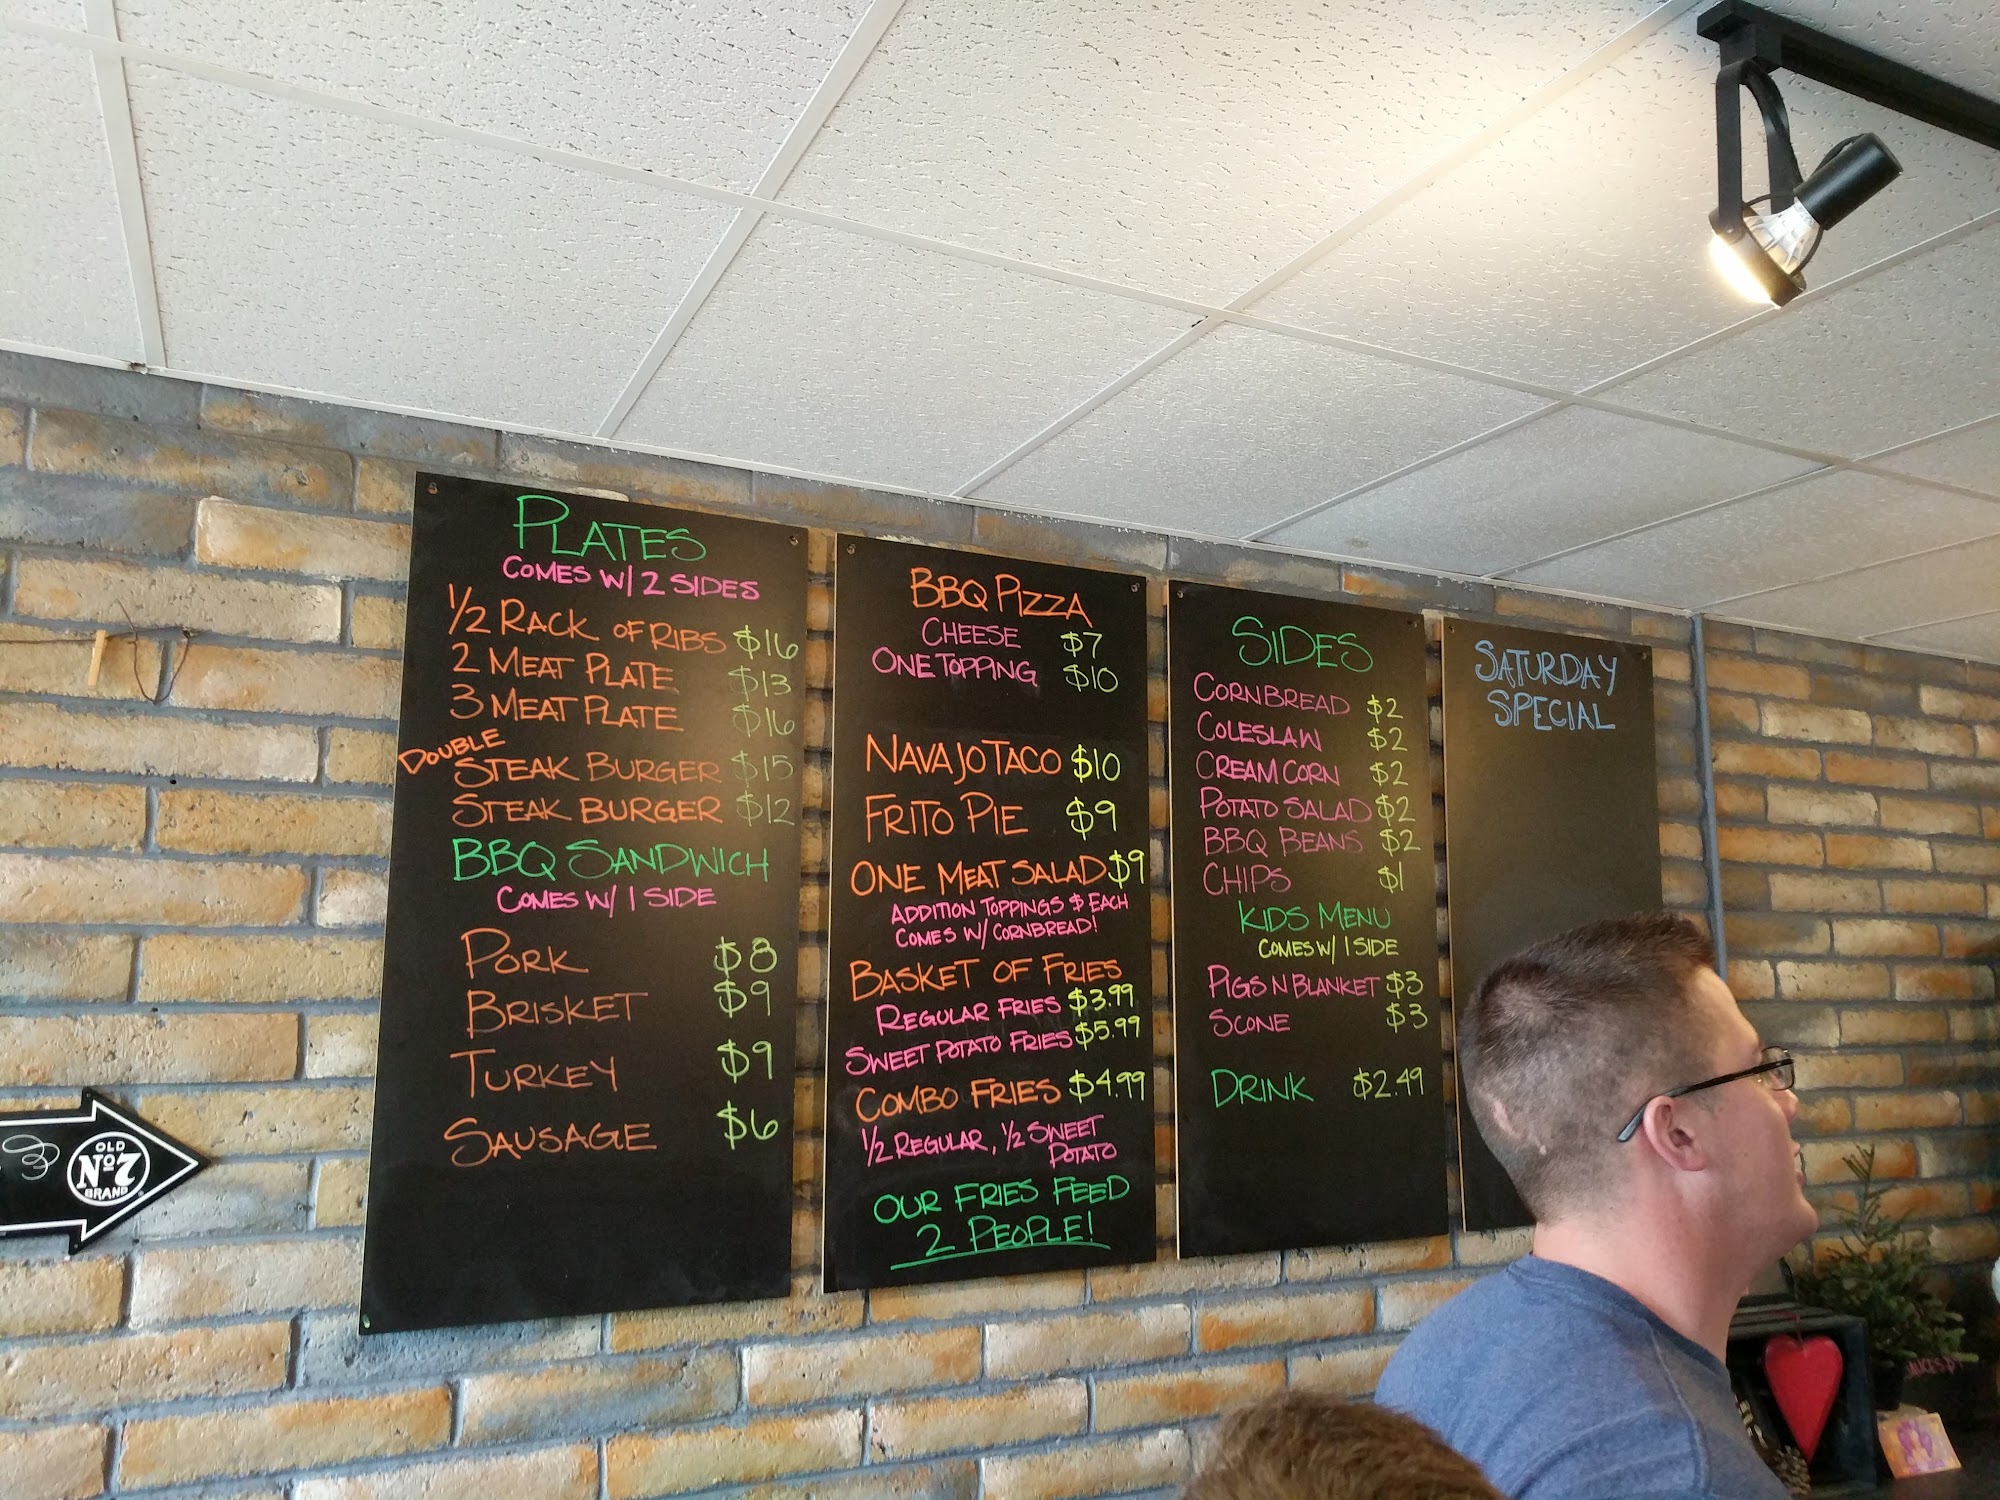 PLATES
COMES W/ 2 SIDES
1/2 RACK OF RIBS $16
2 MEAT PLATE $13
3 MEAT PLATE $16
DOUBLE
STEAK BURGER $15
STEAK BURGER $12
BBQ SANDWICH
COMES W/ 1 SIDE
PORK $8
BRISKET $9
TURKEY $9
SAUSAGE $6
BBQ PIZZA
CHEESE $7
ONE TOPPING $10
NAVAJO TACO $10
FRITO PIE $9
ONE MEAT SALAD $9
ADDITION TOPPINGS $ EACH
COMES W/ CORNBREAD!
BASKET OF FRIES
REGULAR FRIES $3.99
SWEET POTATO FRIES $5.99
COMBO FRIES $4.99
1/2 REGULAR, 1/2 SWEET
POTATO
OUR FRIES FEED
2 PEOPLE!
SIDES
CORNBREAD $2
COLESLAW $2
CREAM CORN $2
POTATO SALAD $2
BBQ BEANS $2
CHIPS $1
KIDS MENU
COMES W/ 1 SIDE
PIGS N BLANKET $3
SCONE $3
DRINK $2.49
SATURDAY
SPECIAL
OLD
No 7
BRAND